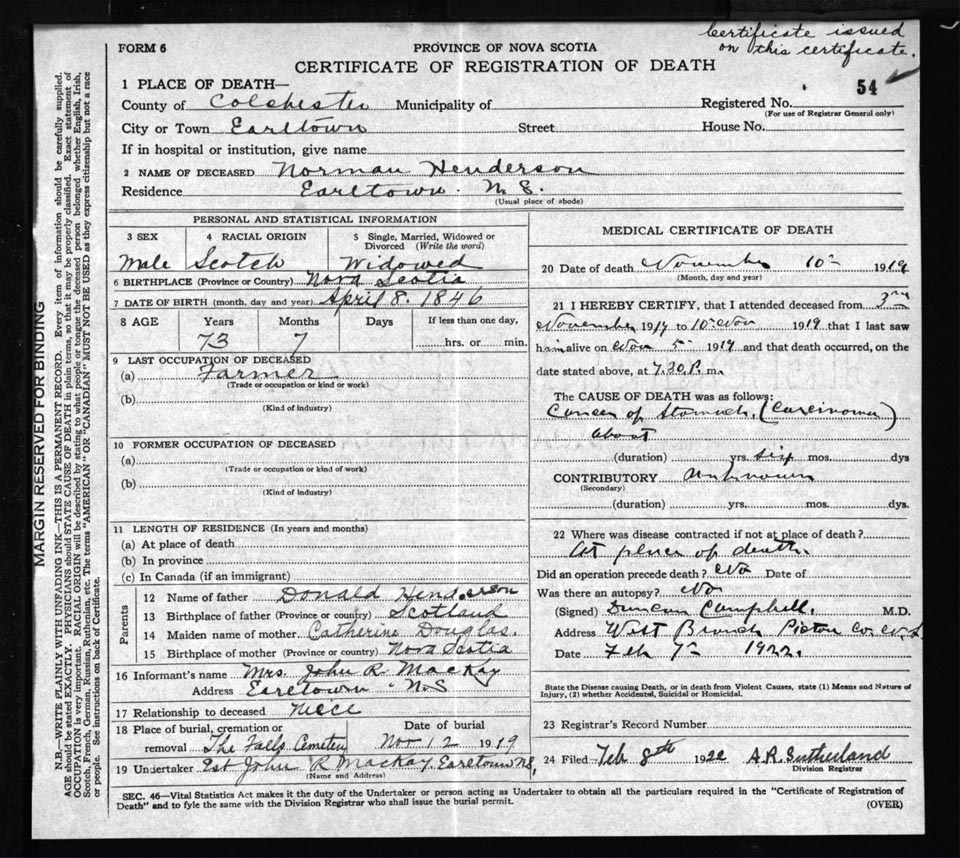 Certificate issued
on this certificate.
FORM 6
PROVINCE OF NOVA SCOTIA
CERTIFICATE OF REGISTRATION OF DEATH
54
1 PLACE OF DEATH—
County of Colchester Municipality of Registered No.
(For use of Registrar General only)
City or Town Earltown Street House No.
If in hospital or institution, give name
2 NAME OF DECEASED Norman Henderson
Residence Earltown. N.S.
(Usual place of abode)
PERSONAL AND STATISTICAL INFORMATION
3 SEX 4 RACIAL ORIGIN 5 Single, Married, Widowed or
Divorced (Write the word)
Male Scotch Widowed
6 BIRTHPLACE (Province or Country) Nova Scotia
7 DATE OF BIRTH (month, day and year) April 8. 1846
8 AGE Years Months Days If less than one day,
73 7 hrs. or min.
9 LAST OCCUPATION OF DECEASED
(a) Farmer
(Trade or occupation or kind or work)
(b)
(Kind of industry)
10 FORMER OCCUPATION OF DECEASED
(a)
(Trade or occupation or kind of work)
(b)
(Kind of industry)
11 LENGTH OF RESIDENCE (In years and months)
(a) At place of death
(b) In province
(c) In Canada (if an immigrant)
Parents
12 Name of father Donald Henderson
13 Birthplace of father (Province or country) Scotland
14 Maiden name of mother Catherine Douglas.
15 Birthplace of mother (Province or country) Nova Scotia
16 Informant's name Mrs. John R. MacKay
Address Earltown N.S
17 Relationship to deceased niece
18 Place of burial, cremation or Date of burial
removal The Falls Cemetery Nov 12 1919
19 Undertaker John R MacKay Earltown N.S.
(Name and Address)
MEDICAL CERTIFICATE OF DEATH
20 Date of death November 10th 1919
(Month, day and year)
21 I HEREBY CERTIFY, that I attended deceased from 3rd
November 1919 to 10th Nov 1919 that I last saw
him alive on Nov 5th 1919 and that death occurred, on the
date stated above, at 7.30 P. m.
The CAUSE OF DEATH was as follows:
Cancer of Stomach, (Carcinoma)
about
(duration) yrs. six mos. dys
CONTRIBUTORY unknown
(Secondary)
(duration) yrs. mos. dys.
22 Where was disease contracted if not at place of death?
At place of death.
Did an operation precede death? No Date of
Was there an autopsy? No
(Signed) Duncan Campbell. M.D.
Address West Branch Pictou Co. N.S
Date Feb 7th 1922.
State the Disease causing Death, or in death from Violent Causes, state (1) Means and Nature of
Injury, (2) whether Accidental, Suicidal or Homicidal.
23 Registrar's Record Number
24 Filed Feb 8th 1922 A.R. Sutherland
Division Registrar
SEC. 46—Vital Statistics Act makes it the duty of the Undertaker or person acting as Undertaker to obtain all the particulars required in the "Certificate of Registration of
Death" and to fyle the same with the Division Registrar who shall issue the burial permit.
(OVER)
MARGIN RESERVED FOR BINDING
N.B.—WRITE PLAINLY WITH UNFADING INK—THIS IS A PERMANENT RECORD. Every item of information should be carefully supplied.
AGE should be stated EXACTLY. PHYSICIANS should STATE CAUSE OF DEATH in plain terms, so that it may be properly classified. Exact statement of
OCCUPATION is very important. RACIAL ORIGIN will be described by stating to what people or tongue the deceased person belonged whether English, Irish,
Scotch, French, German, Russian, Ruthenian, etc. The terms "AMERICAN" OR "CANADIAN" MUST NOT BE USED as they express citizenship but not a race
or people. See instructions on back of Certificate.